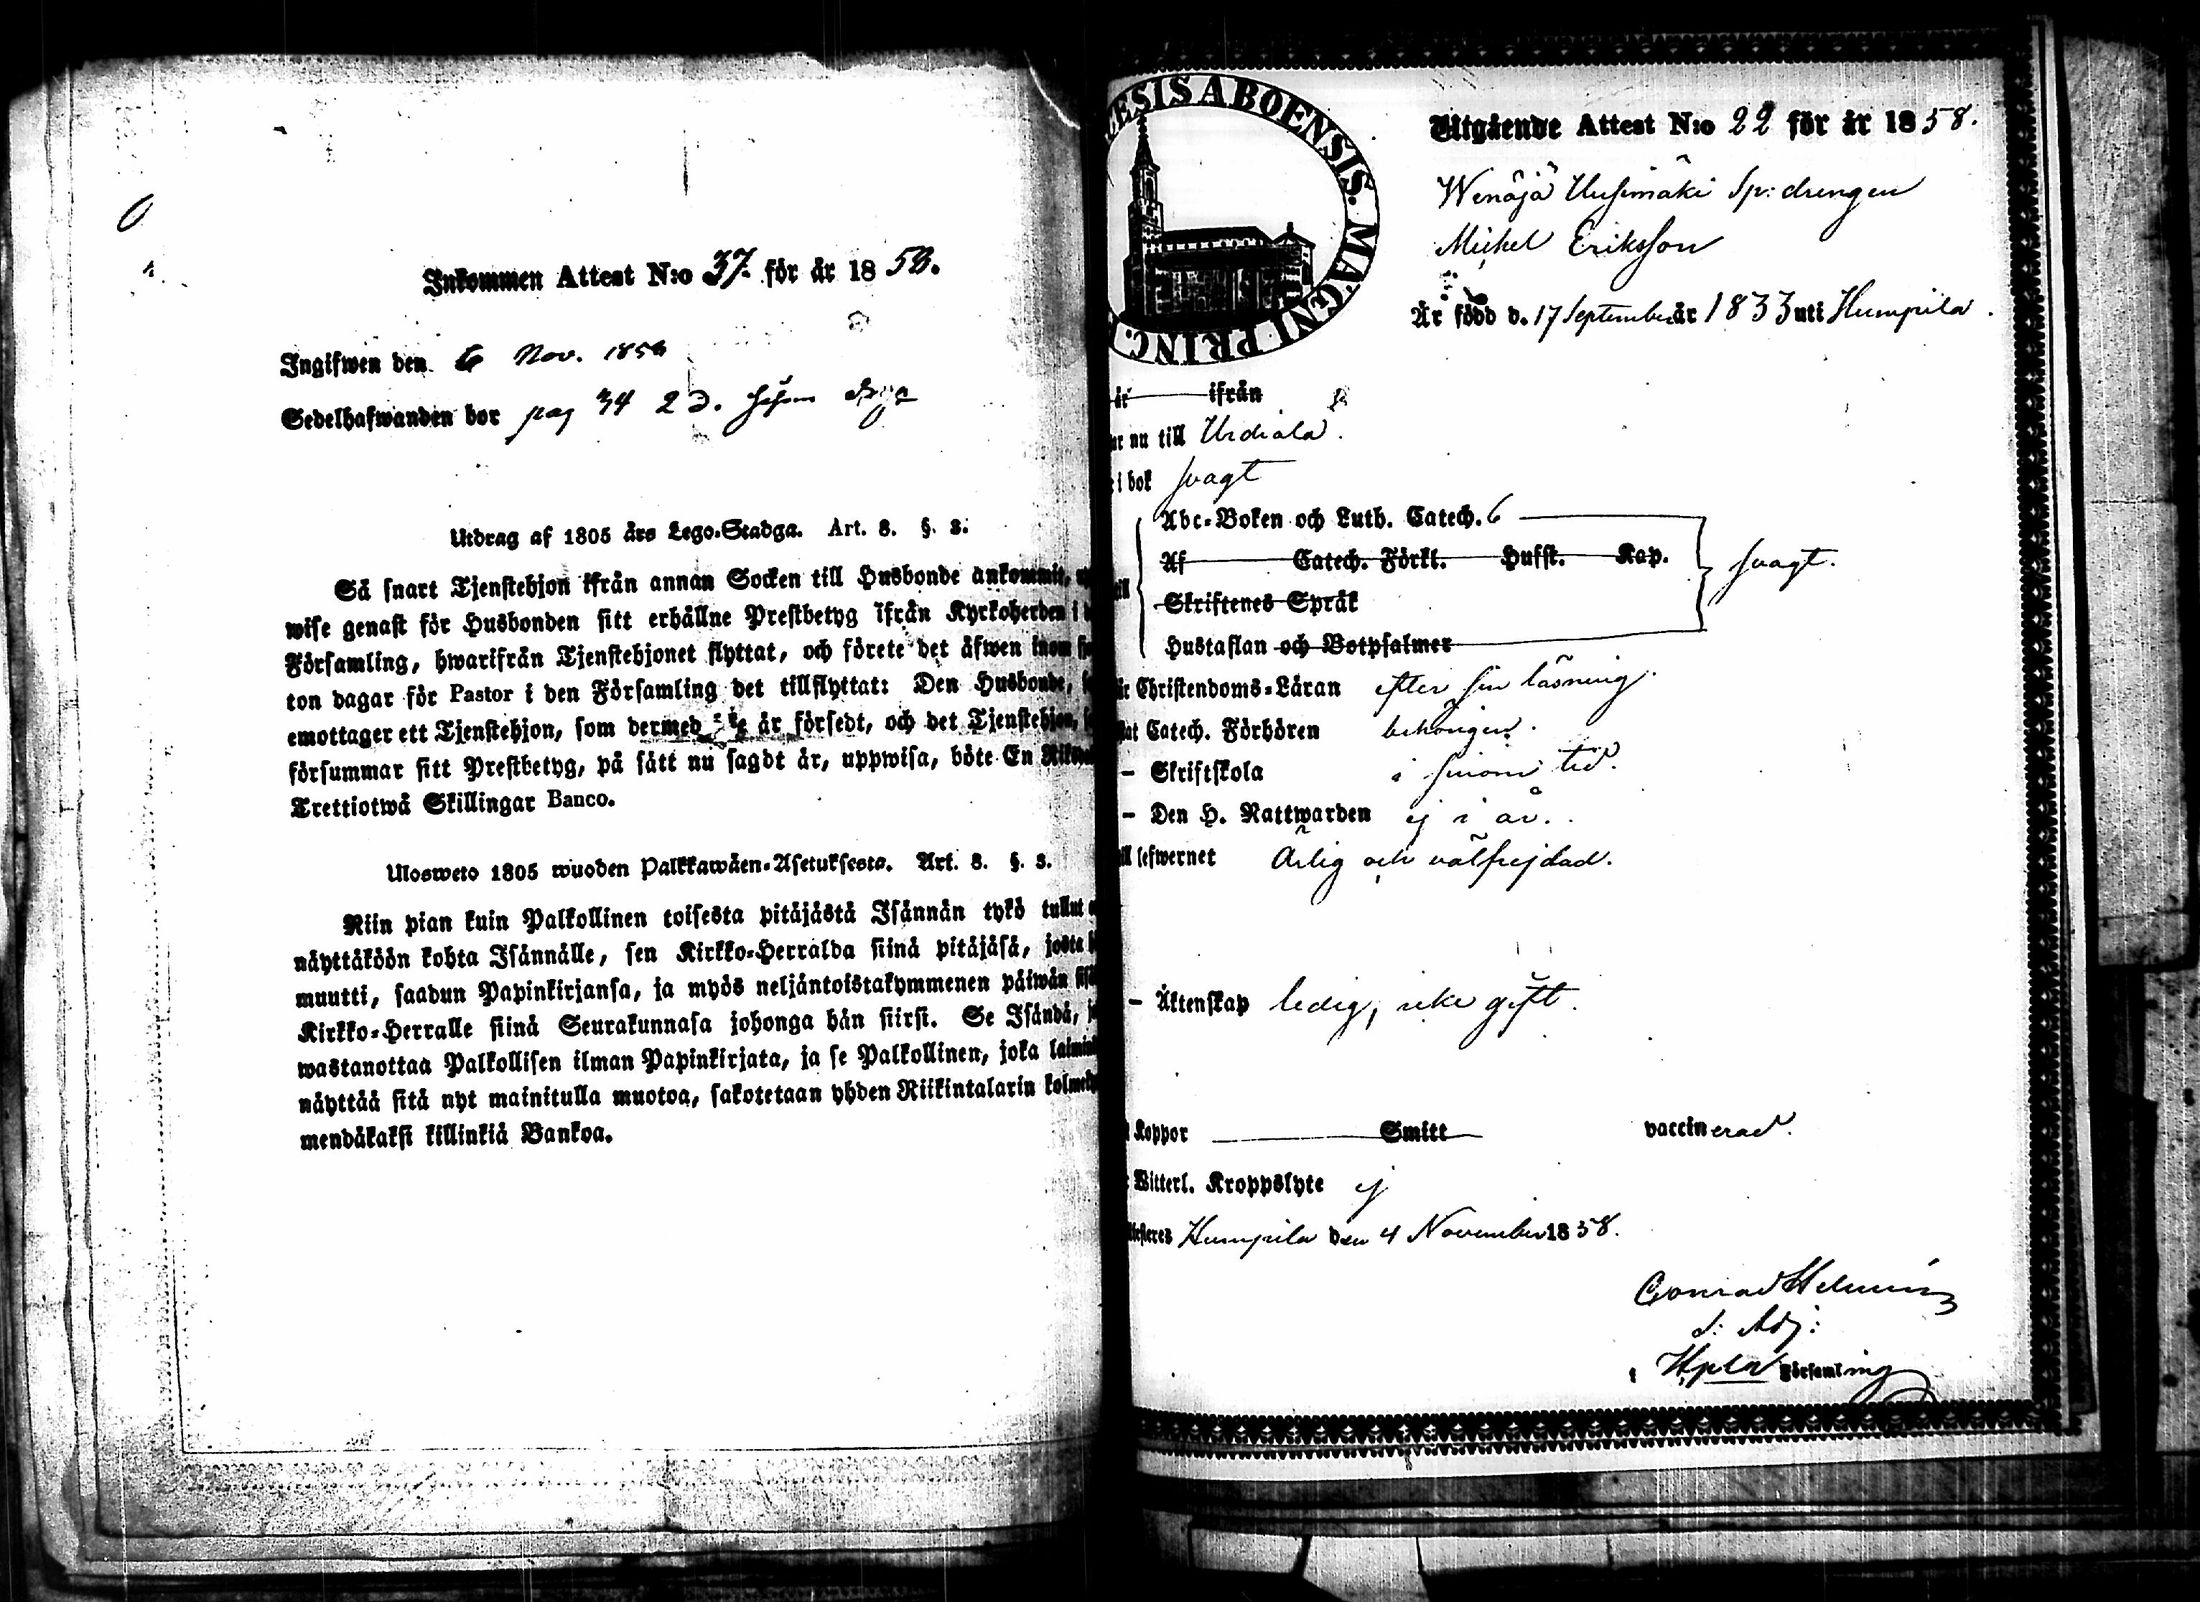 Inkommen Attest N:o 37. för år 1858.
Ingifwen den 6 Nov. 1858
Sedelhafwanden bor pag 34 2 d.
Utdrag af 1805 års Lego-Stadga. Art. 8. §. 3.
Så snart Tjenstehjon ifrån annan Socken till Husbonde ankommit,
wise genast för Husbonden sitt erhållne Prestbetyg ifrån Kyrkoherden i
Församling, hwarifrån Tjenstehjonet flyttat, och förete det äfwen inom
ton dagar för Pastor i den Församling det tillflyttat: Den Husbonde,
emottager ett Tjenstehjon, som dermed icke är försedt, och det Tjenstehjon,
försummar sitt Prestbetyg, på sätt nu sagdt är, uppwisa, böte En
Trettiotwå Skillingar Banco.
Ulosweto 1805 wuoden Palkkawäen-Asetuksesta. Art. 8. §. 3.
Niin pian kuin Palkollinen toisesta pitäjästä Isännän tykö tullut
näyttäköön kohta Isännälle, sen Kirkko-Herralda siinä pitäjäsä, josta
muutti, saadun Papinkirjansa, ja myös neljäntoistakymmenen päiwän
Kirkko-Herralle siinä Seurakunnasa johonga hän siirsi. Se Isändä,
wastanottaa Palkollisen ilman Papinkirjata, ja se Palkollinen, joka
näyttää sitä nyt mainitulla muotoa, sakotetaan yhden Riikintalarin
mendäkaksi killinkiä Bankoa.
ESIS ABOENSIS. MAGNI PRINC.
Utgående Attest N:o 22 för år 1858.
Wenäjä Uusimäki Sp: drengen
Michel Eriksson
Är född d. 17 September år 1833 uti Humpila.
år ifrån
nu till Urdiala.
i bok svagt
Abc-Boken och Luth. Catech. 6
Af Catech. Förkl. Hufst. Kap.
svagt.
Skriftenes Språk
Hustaflan och Botpsalmer
Christendoms-Läran efter sin läsning.
Catech. Förhören behörigen.
- Skriftskola i sinom tid.
- Den H. Nattwarden ej i år.
lefwernet Ärlig och välfrejdad.
- Äktenskap ledig, icke gift.
Koppor Smitt vaccinerad.
Witterl. Kroppslyte ej
Humpila den 4 November 1858.
Conrad
Adj:
i Hpla Församling